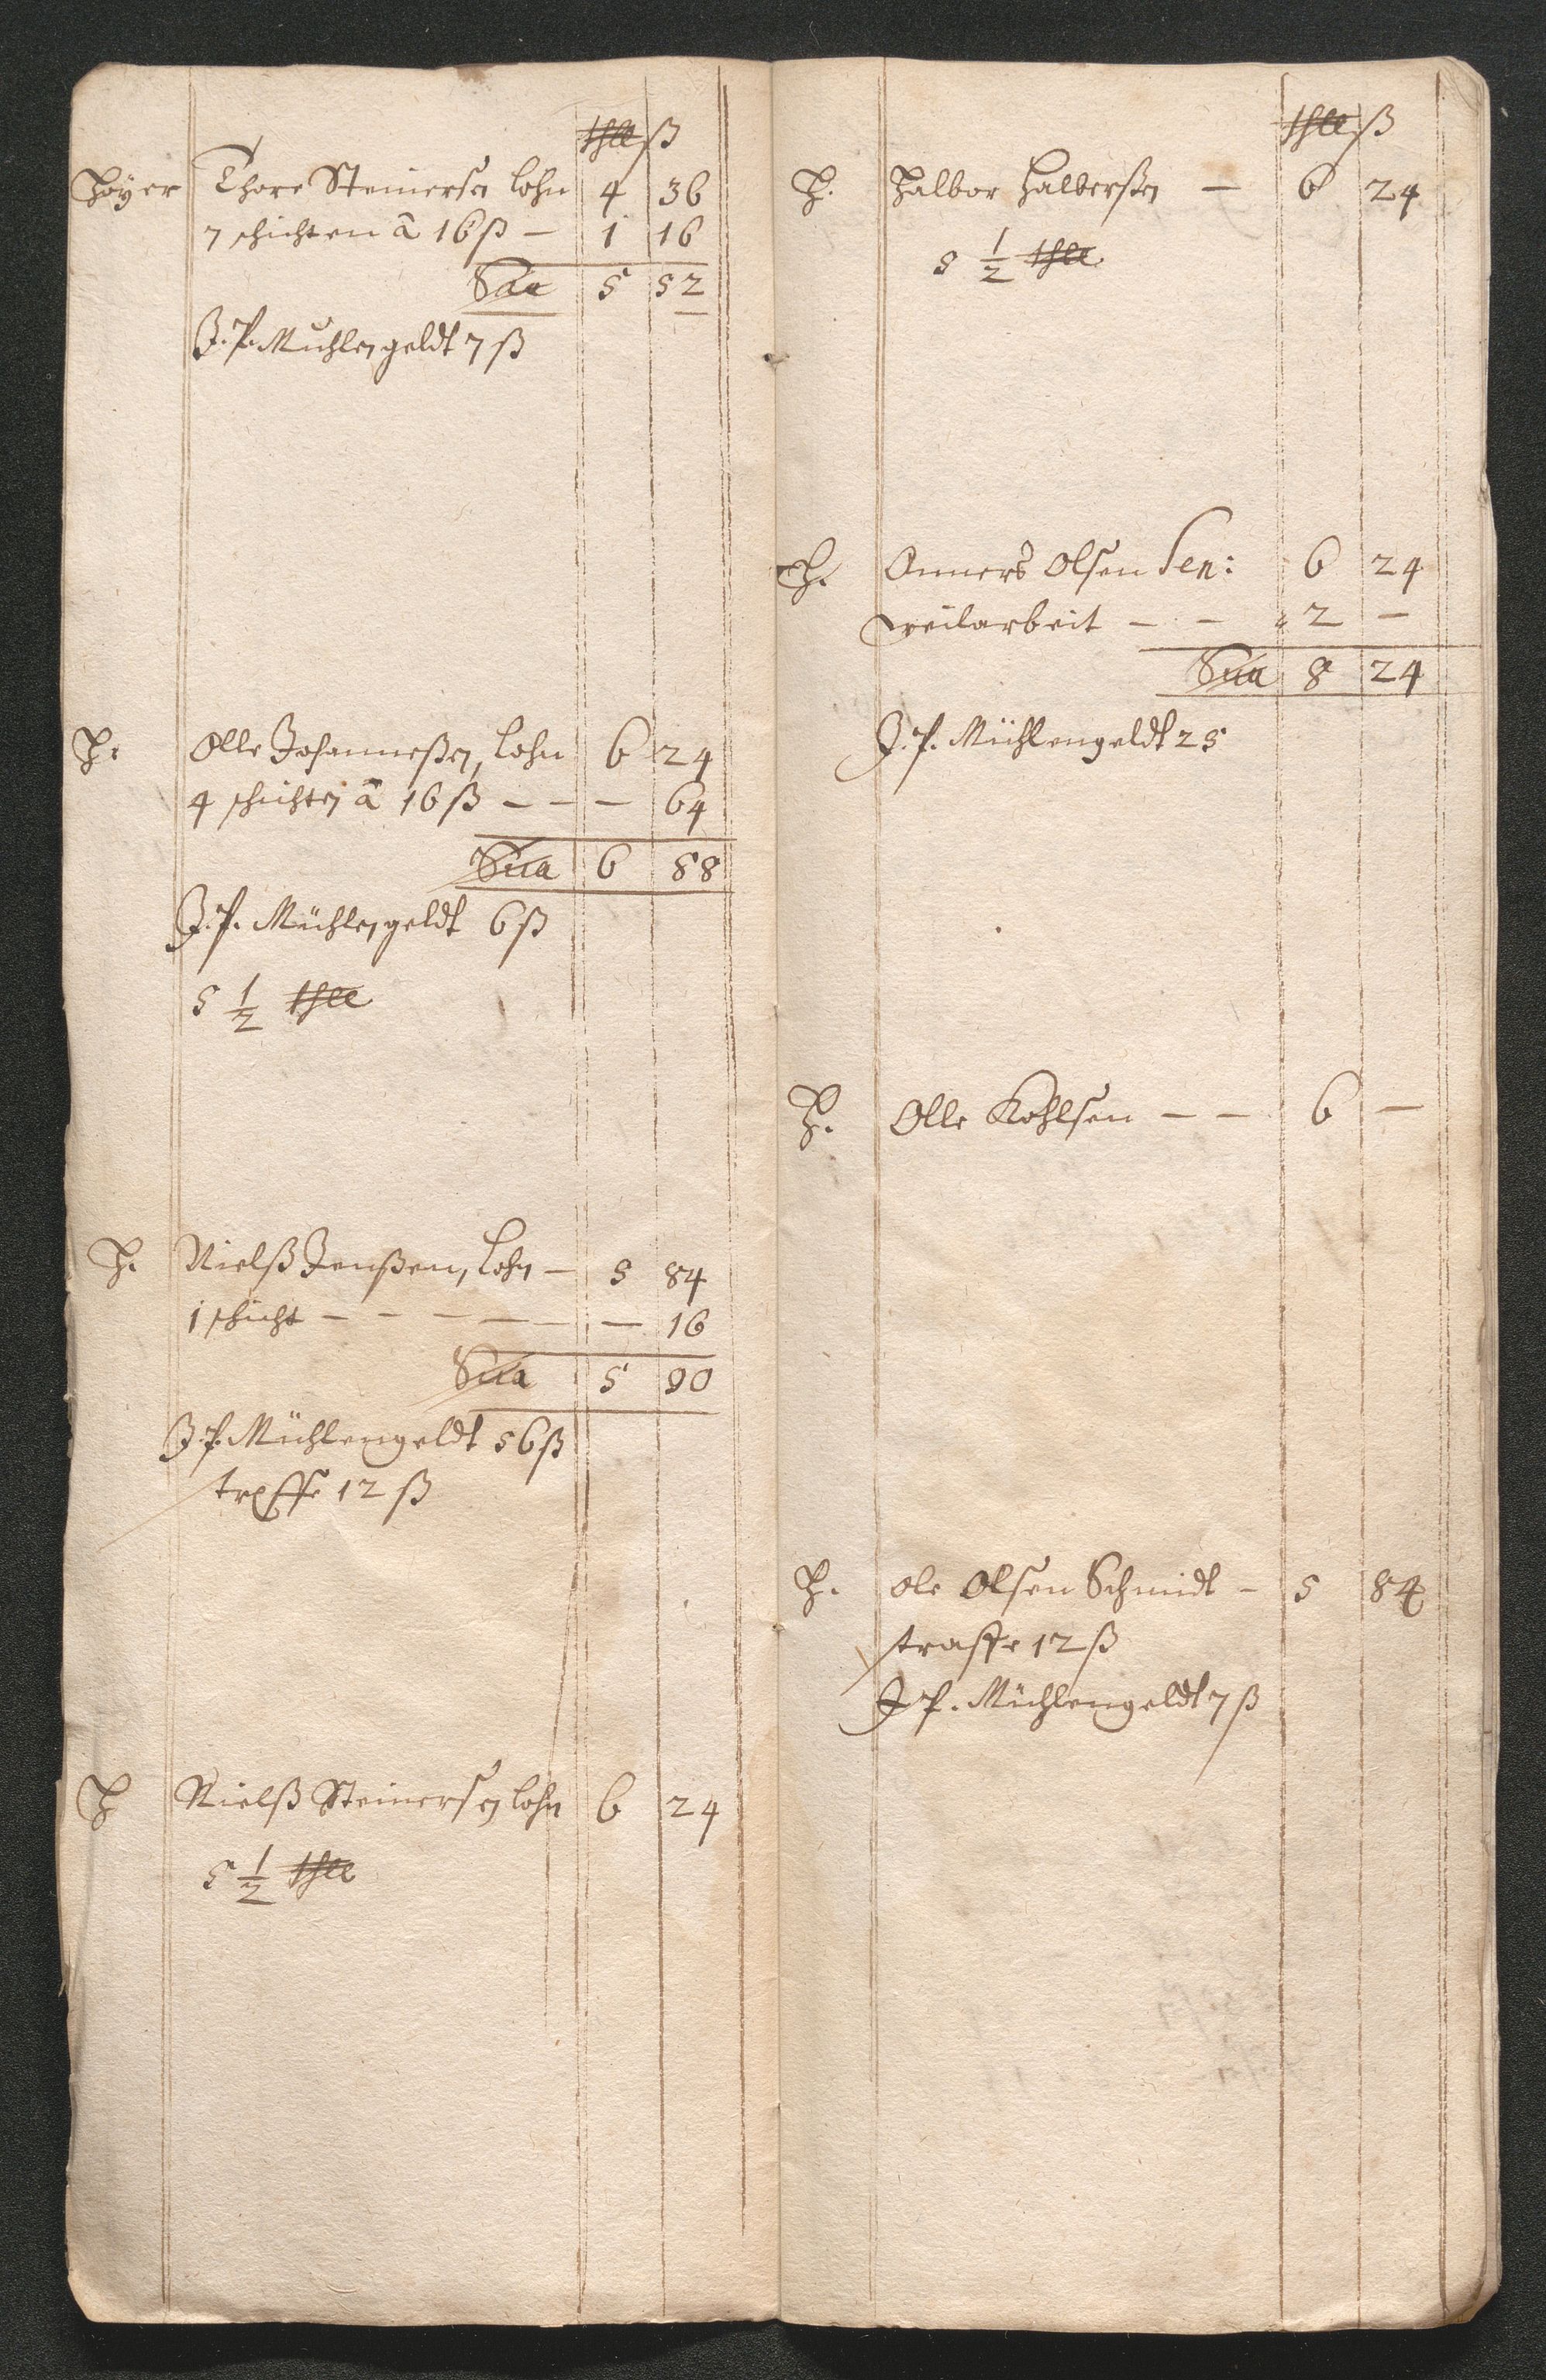 thlr ß
Höyer Thore Steinersen lohn 4 36
7 schichten â 16 ß — 1 16
Sūa 5 52
J. P. Mühlengeldt 7 ß
H: Olle Johanneßen, lohn 6 24
4 schichten â 16 ß — — — 64
Sūa 6 88
J. P. Mühlengeldt 6 ß
5 1/2 thlr
H. Nielß Jenßen, Lohn — 5 84
1 schicht — — — — — — 16
Sūa 5 90
J. P. Mühlengeldt 56 ß
12 ß
H Nielß Steinersen lohn 6 24
5 1/2 thlr
thlr ß
H. Halvor Halverßen — 6 24
5 1/2 thlr
H. Anners Olsen Sen: 6 24
weilarbeit — — 2 —
Sūa 8 24
J. P. Mühlengeldt 25
H. Olle Kohlsen — — 6 —
H. Ole Olsen Schmidt — 5 84
12 ß
J P. Mühlengeldt 7 ß